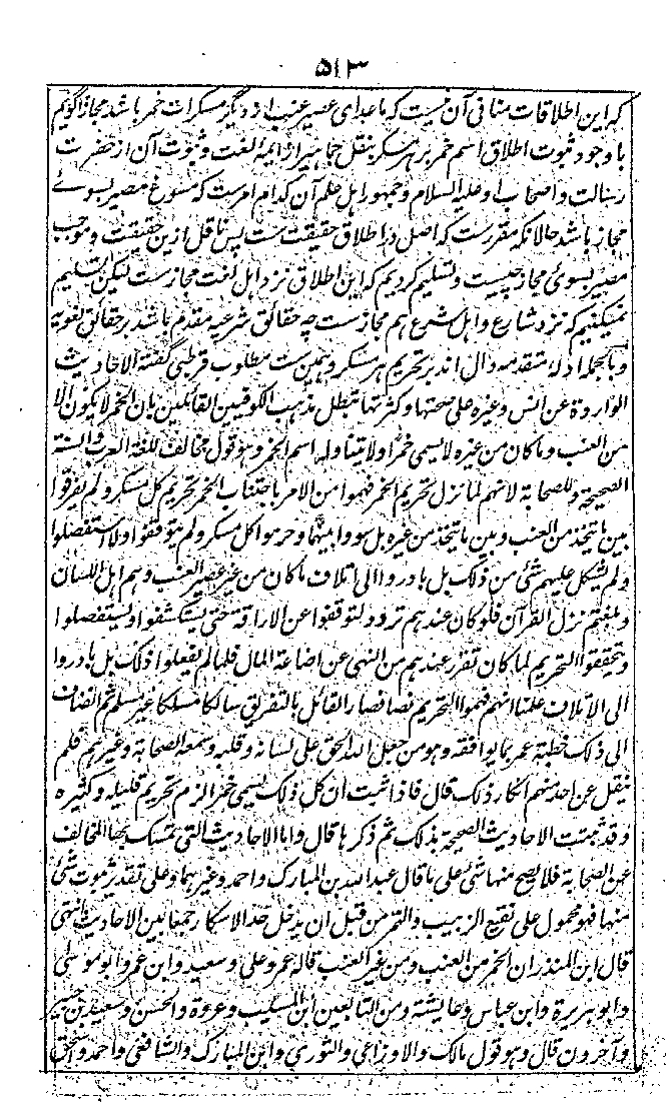 ۵۱۳
که این اطلاقات منافی آن نیست که ماعدای عصیر عنب از دیگر مسکرات خمر باشد مجازا گوئیم
با وجود ثبوت اطلاق اسم خمر بر هر مسکر بنقل جماهیر از ایمه لغت و ثبوت آن از حضرت
رسالت و اصحاب او علیه السلام و جمهور اهل علم آن کدام امرست که مسوغ مصیر بسوئے
مجاز باشد حالانکه مقررست که اصل در اطلاق حقیقت ست پس ناقل ازین حقیقت و موجب
مصیر بسوی مجاز چیست و تسلیم کردیم که این اطلاق نزد اهل لغت مجازست لیکن تسلیم
نمیکنیم که نزد شارع و اهل شرع هم مجازست چه حقائق شرعیه مقدم باشد بر حقائق لغویه
و بالجمله ادله متقدمه دال اند بر تحریم هر مسکر و همین ست مطلوب قرطبی گفته الاحادیث
الواردة عن انس وغیره علی صحتها وکثرتها تبطل مذهب الکوفیین القائلین بان الخمر لا یکون الا
من العنب وما کان من غیره لا یسمی خمرا ولا یتناوله اسم الخمر وهو قول مخالف للغة العرب والسنة
الصحیحة وللصحابة لانهم لما نزل تحریم الخمر فهموا من الامر باجتناب الخمر تحریم کل مسکر ولم یفرقوا
بین ما یتخذ من العنب وبین ما یتخذ من غیره بل سووا بینهما وحرموا کل مسکر ولم یتوقفوا ولا استفصلوا
ولم یشکل علیهم شئ من ذلک بل بادروا الی اتلاف ما کان من غیر عصیر العنب وهم اهل اللسان
وبلغتهم نزل القرآن فلو کان عندهم تردد لتوقفوا عن الاراقة حتی یستکشفوا ویستفصلوا
ویتحققوا التحریم لما کان تقرر عندهم من النهی عن اضاعة المال فلما لم یفعلوا ذلک بل بادروا
الی الاتلاف علمنا انهم فهموا التحریم نصا فصار القائل بالتفریق سالکا مسلکا غیر سبیلهم ثم انضاف
الی ذلک خطبة عمر بما یوافقه وهو من جعل الله الحق علی لسانه وقلبه وسمعه الصحابة وغیرهم فلم
ینقل عن احد منهم انکار ذلک قال فاذا ثبت ان کل ذلک یسمی خمرا لزم تحریم قلیله وکثیره
وقد ثبتت الاحادیث الصحیحة بذلک ثم ذکرها قال واما الاحادیث التی تمسک بها المخالف
عن الصحابة فلا یصح منها شئ علی ما قال عبدالله بن المبارک واحمد وغیرهما وعلی تقدیر ثبوت شئ
منها فهو محمول علی نقیع الزبیب والتمر من قبل ان یدخل حد الاسکار جمعا بین الاحادیث انتهی
قال ابن المنذر ان الخمر من العنب ومن غیر العنب قاله عمر وعلی وسعید وابن عمر وابو موسی
وابو هریرة وابن عباس وعایشة ومن التابعین ابن المسیب وعروة والحسن وسعید بن جبیر
وآخرون قال وهو قول مالک والاوزاعی والثوری وابن المبارک والشافعی واحمد واسحق